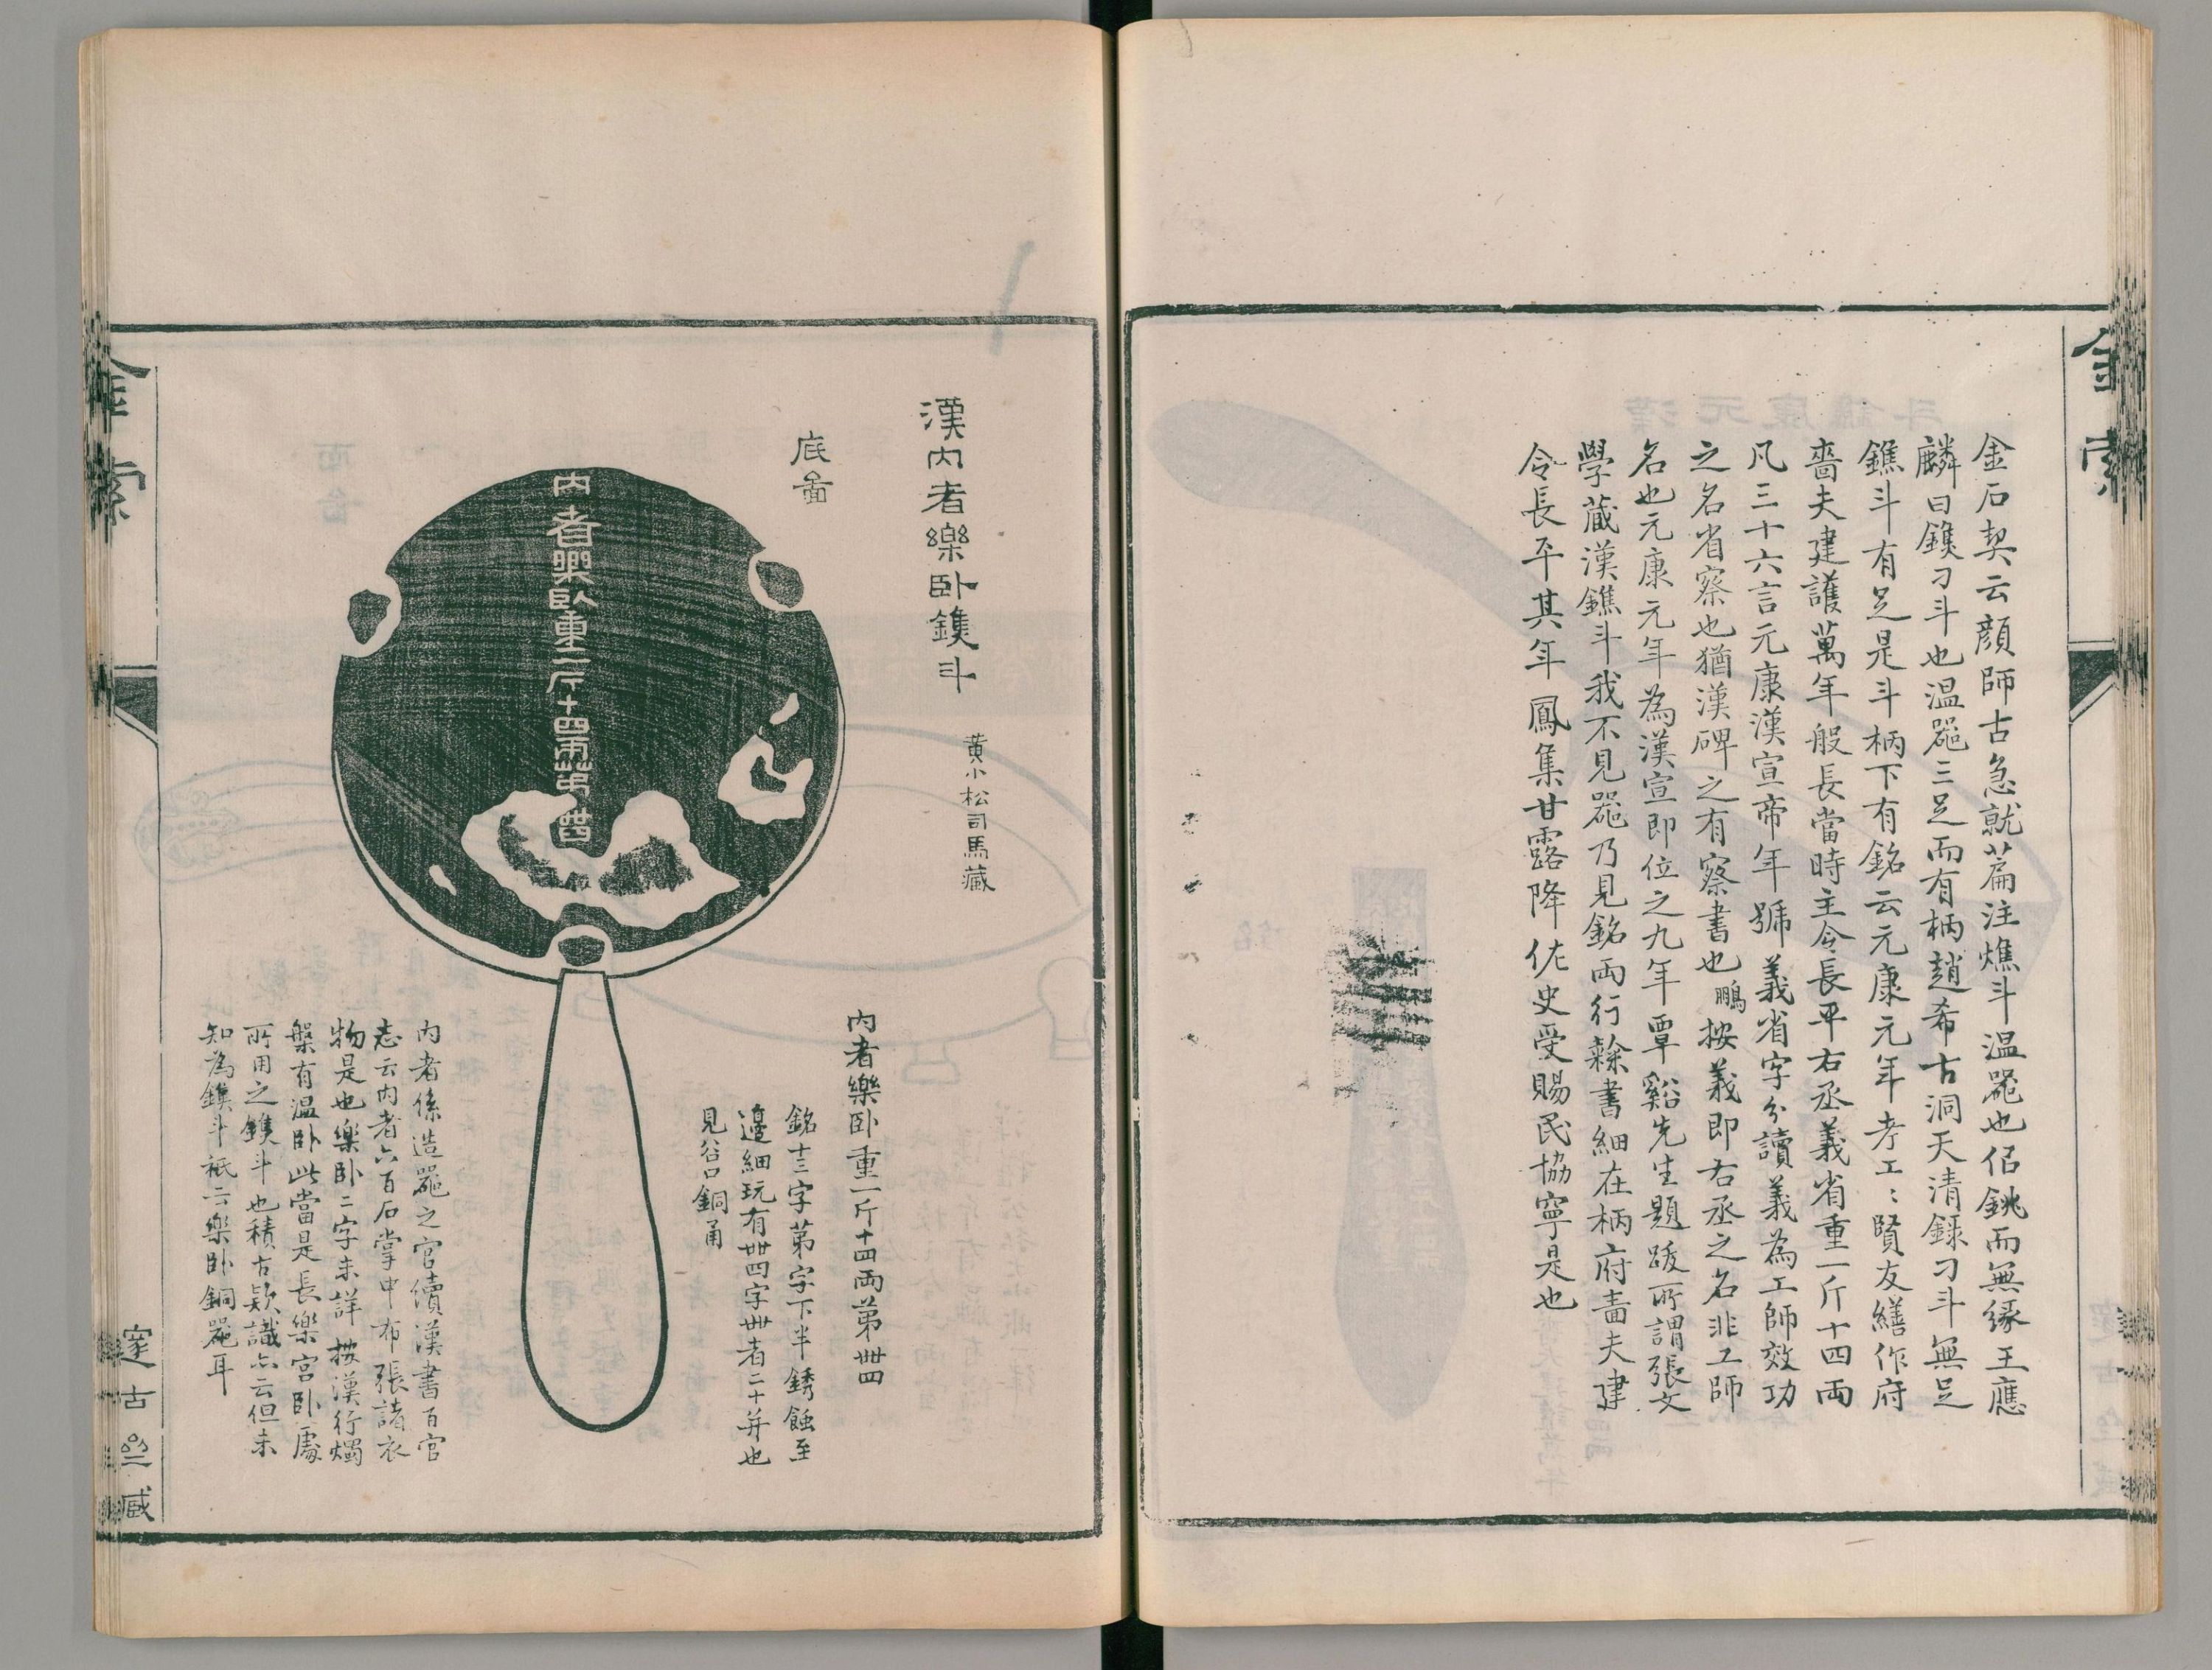 金索
金石契云顔師古急就萹注燋斗温器也佋銚而無緣王應
麟曰鐎刁斗也温器三足而有柄趙希古洞天清録刁斗無足
鐎斗有足是斗柄下有銘云元康元年考工〻賢友繕作府
嗇夫建護萬年般長當時主令長平右丞義省重一斤十四兩
凡三十六言元康漢宣帝年號義省字分讀義為工師效功
之名省察也猶漢碑之有察書也鵬按義即右丞之名非工師
名也元康元年為漢宣即位之九年覃谿先生題跋所謂張文
學藏漢鐎斗我不見器乃見銘兩行䋣書細在柄府嗇夫建
令長平其年鳳集甘露降佐史受賜民協寧是也
漢内者樂卧鐎斗
黄小松司馬藏
底圖
内者樂卧重一斤十四兩第卌
内者樂卧重一斤十四兩第卌四
銘十三字第字下半銹蝕至
邊細玩有卌四字卌者二十并也
見谷口銅甬
内者係造器之官續漢書百官
志云内者六百石掌中布張諸衣
物是也樂卧二字未詳按漢行燭
槃有温卧此當是長樂宫卧處
所用之鐎斗也積古款識亦云但未
知為鐎斗祗云樂卧銅器耳
金索
邃古齋藏